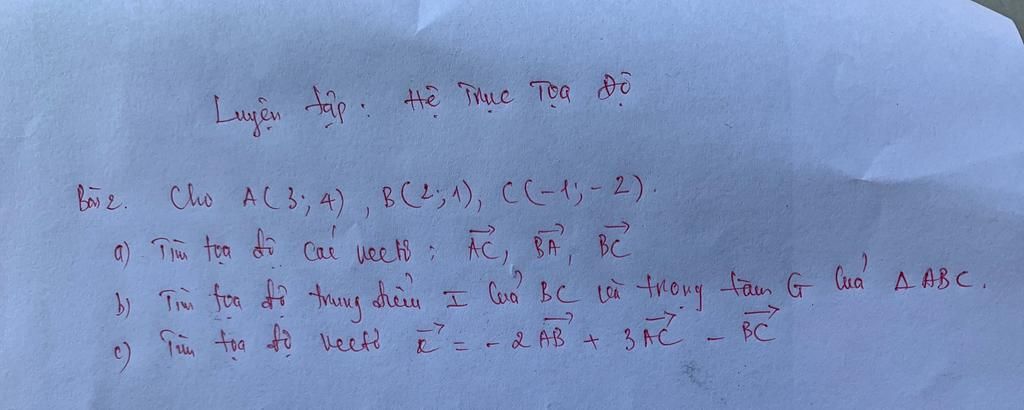 Luyện tập: Hệ Trục Tọa Độ
Bài 2. Cho A(3; 4), B(2; 1), C(-1; -2).
a) Tìm tọa độ các vectơ: \overrightarrow{AC}, \overrightarrow{BA}, \overrightarrow{BC}
b) Tìm tọa độ trung điểm I của BC và trọng tâm G của Δ ABC.
c) Tìm tọa độ vectơ \overrightarrow{x} = - 2\overrightarrow{AB} + 3\overrightarrow{AC} - \overrightarrow{BC}